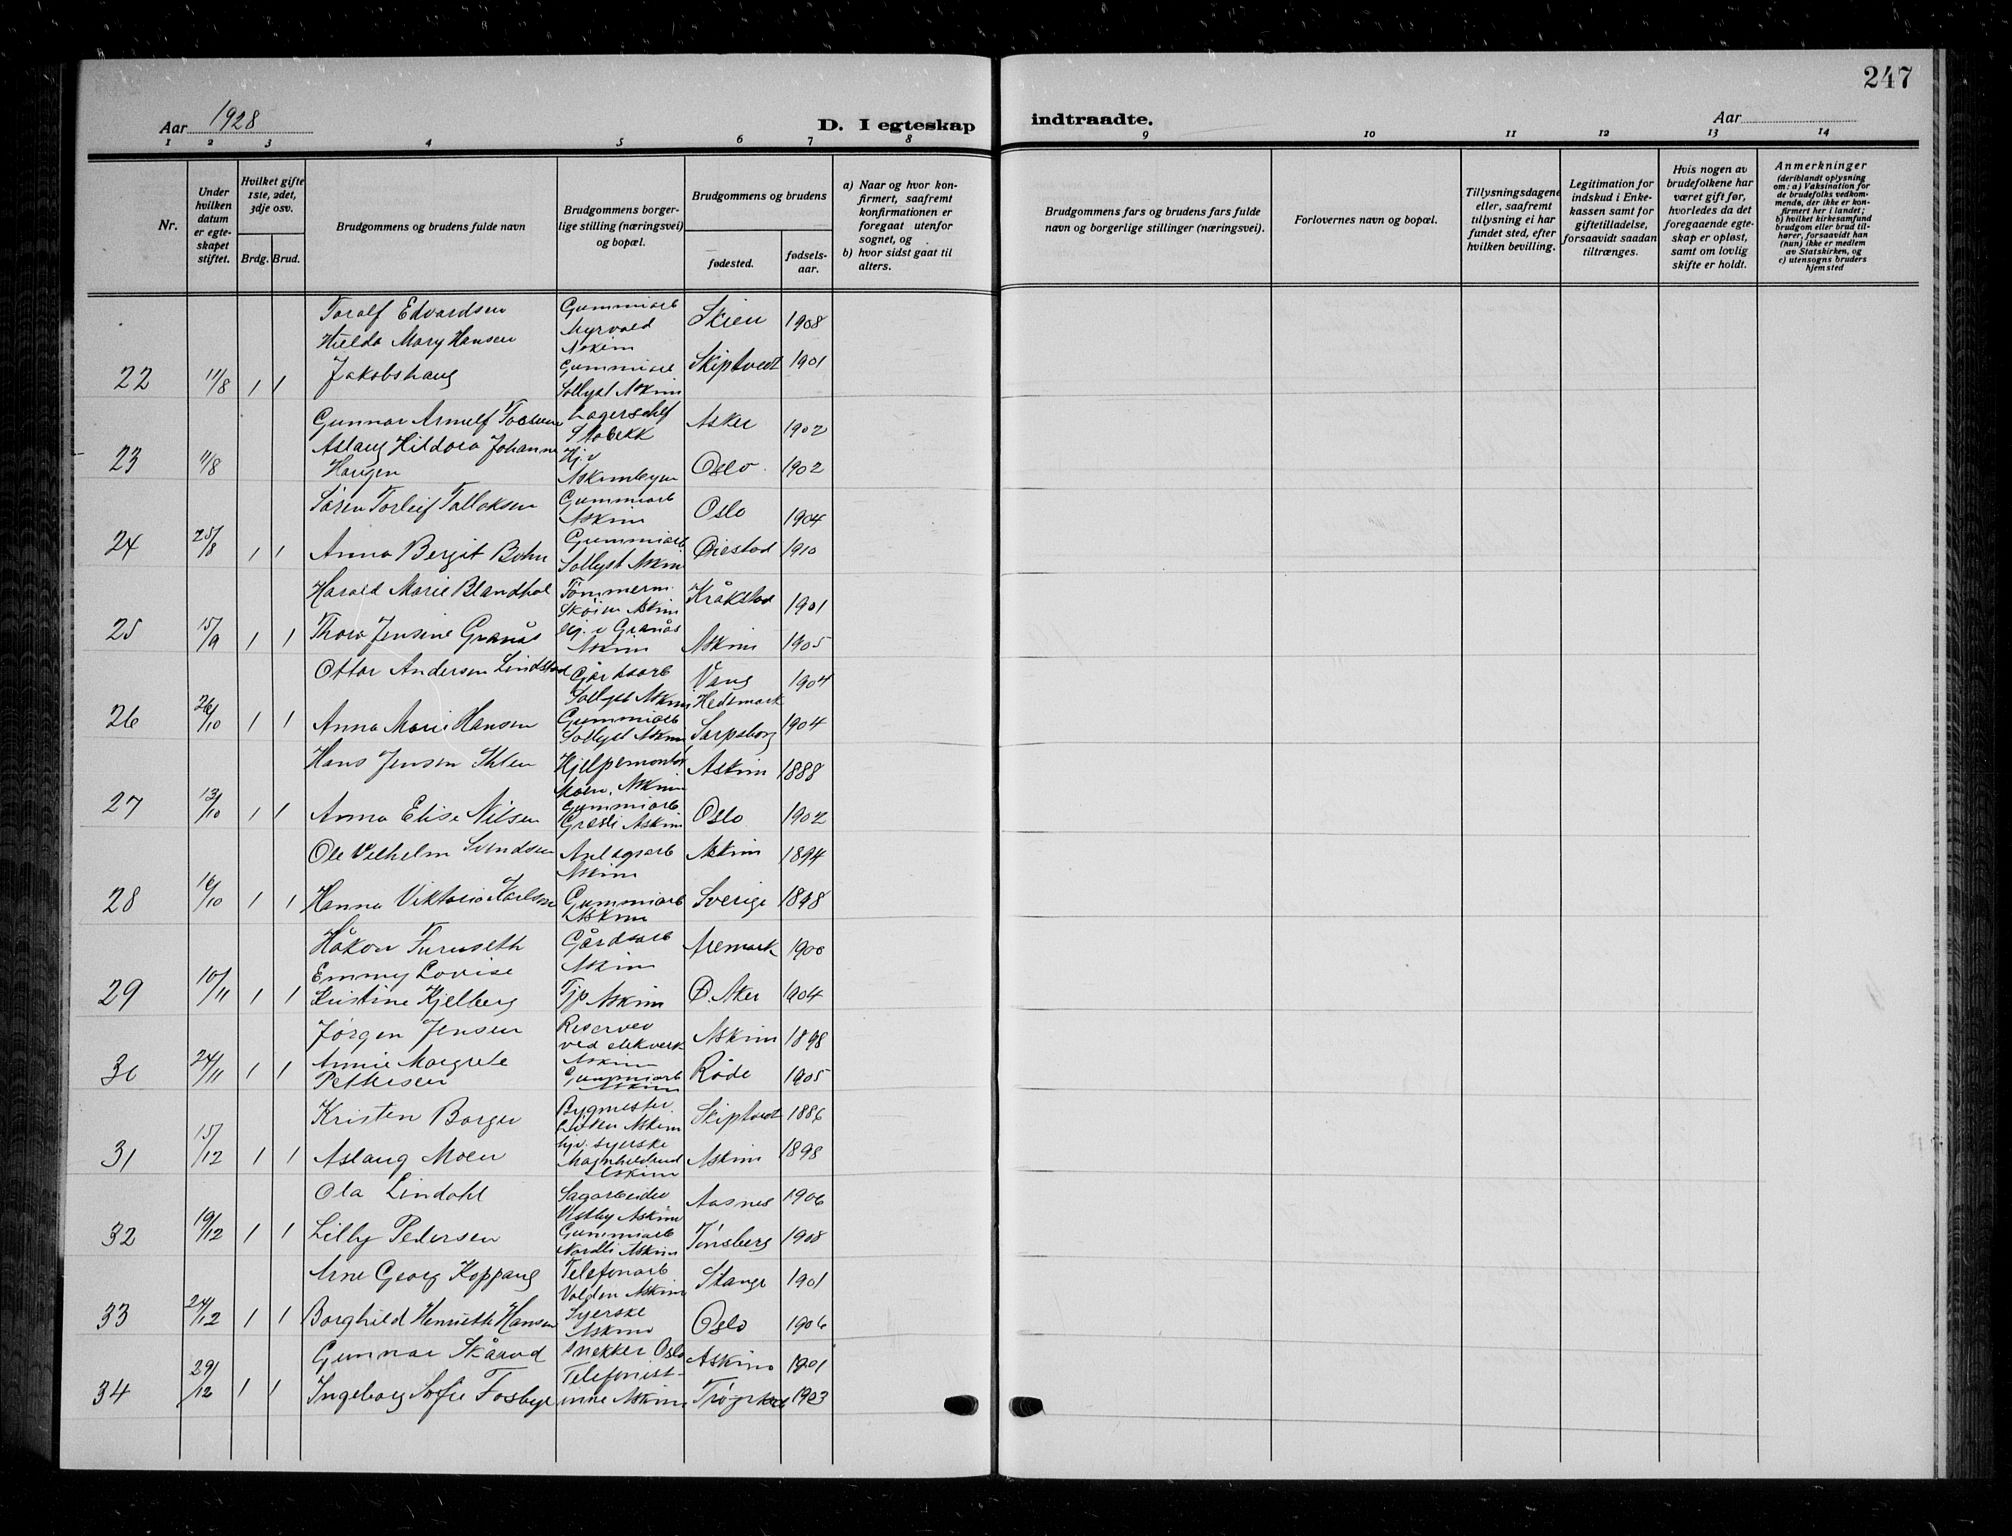 247
Aar 1928
D. I egteskap
indtraadte.
Aar
1 2 3 4 5 6 7 8 9 10 11 12 13 14
Nr.
Under hvilken datum er egteskapet stiftet.
Hvilket gifte 1ste, 2det, 3dje osv.
Brdg. Brud.
Brudgommens og brudens fulde navn
Brudgommens borgerlige stilling (næringsvei) og bopæl.
Brudgommens og brudens
fødested.
fødselsaar.
a) Naar og hvor konfirmert, saafremt konfirmationen er foregaat utenfor sognet, og
b) hvor sidst gaat til alters.
Brudgommens fars og brudens fars fulde navn og borgerlige stillinger (næringsvei).
Forlovernes navn og bopæl.
Tillysningsdagene eller, saafremt tillysning ei har fundet sted, efter hvilken bevilling.
Legitimation for indskud i Enkekassen samt for giftetilladelse, forsaavidt saadan tiltrænges.
Hvis nogen av brudefolkene har været gift før, hvorledes da det foregaaende egteskap er opløst, samt om lovlig skifte er holdt.
Anmerkninger (deriblandt oplysning om: a) Vaksination for de brudefolks vedkommende, der ikke er konfirmert her i landet; b) hvilket kirkesamfund brudgom eller brud tilhører, forsaavidt han (hun) ikke er medlem av Statskirken, og c) utensogns bruders hjemsted
Toralf Edvardsen Gummiarb Myrvold Askim Skien 1908
22 11/8 1 1 Hilda Mary Hansen Jakobshaug Gummiarb Sollyst Askim Skiptvedt 1901
Gunnar Arnulf Stabekk Asker 1902
23 11/8 Aslaug Hildora Johanne Haugen Hj. v Askimbyen Oslo 1902
Søren Torleif Tallaksen Gummiarb Askim Oslo 1904
24 25/8 1 1 Anna Bergit Bohn Gummiarb Sollyst Askim Øiestad 1910
Harald Marie Tømmerm. Askim Kråkstad 1901
25 15/9 1 1 Thora Jensine Granås Hj. v Granås Askim Askim 1905
Ottar Andersen Lindstad Gårdsarb Sollyst Askim Vang Hedemark 1904
26 26/10 1 1 Anna Marie Hansen Gummiarb Sollyst Askim Sarpsborg 1904
Hans Jensen Hjelpemontør Moen, Askim Askim 1888
27 13/10 1 1 Anna Elise Nilsen Gummiarb Askim Oslo 1902
Ole Vilhelm Svendsen Anlegsarb Askim Askim 1894
28 16/10 1 1 Hanna Viktoria Karlsson Gummiarb Askim Sverige 1898
Håkon Furuseth Gårdsarb Askim Aremark 1900
29 10/11 1 1 Emmy Lovise Kristine Kjelberg Tjp Askim Ø. Aker 1904
Jørgen Jensen Reserve ved elekverk Askim Askim 1898
30 24/11 1 1 Annie Margrete Pettersen Gummiarb Askim Røde 1905
Kristen Borger Bygmester Askim Skiptvedt 1886
31 15/12 1 1 Aslaug Moen hjv. syerske Magnhildrud Askim Askim 1898
Ola Lindahl Sagarbeider Vestby Askim Aasnes 1906
32 19/12 1 1 Lilly Pedersen Gummiarb Nordli Askim Tønsberg 1908
Arne Georg Koppang Telefonarb Volden Askim Stange 1901
33 24/12 1 1 Borghild Henriette Hansen Syerske Askim Oslo 1906
Gunnar Skåaud Snekker Oslo Askim 1901
34 29/12 1 1 Ingeborg Sofie Fosbye Telefonistinne Askim Trøgstad 1903